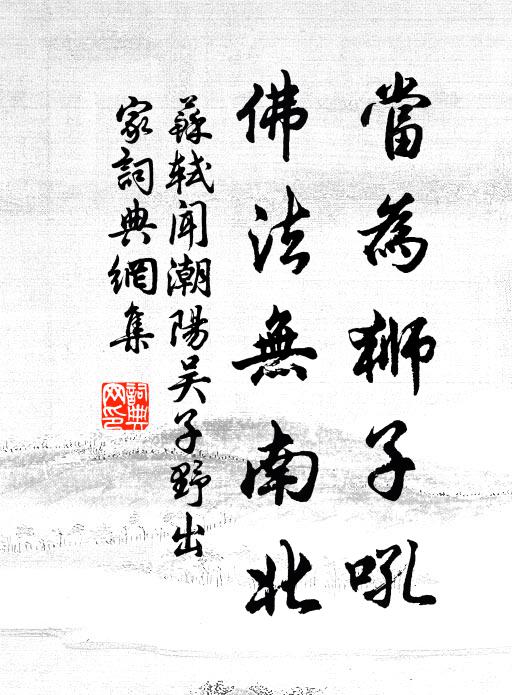 當為獅子吼
佛法無南北
蘇軾聞潮陽吳子野出
家詞典網集
詞典
网印